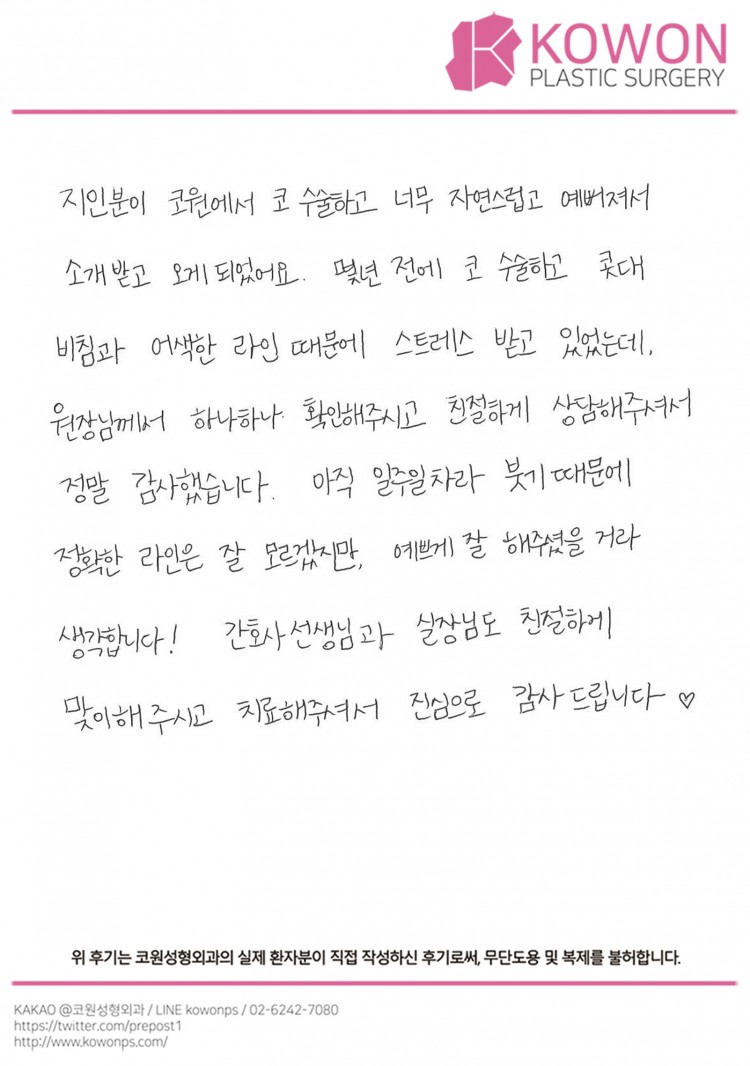 KOWON
PLASTIC SURGERY
지인분이 코원에서 코 수술하고 너무 자연스럽고 예뻐져서
소개받고 오게 되었어요. 몇년 전에 코 수술하고 콧대
비침과 어색한 라인 때문에 스트레스 받고 있었는데,
원장님께서 하나하나 확인해주시고 친절하게 상담해주셔서
정말 감사했습니다. 아직 일주일차라 붓기때문에
정확한 라인은 잘 모르겠지만, 예쁘게 잘 해주셨을 거라
생각합니다! 간호사선생님과 실장님도 친절하게
맞이해 주시고 치료해주셔서 진심으로 감사드립니다 ♡
위 후기는 코원성형외과의 실제 환자분이 직접 작성하신 후기로써, 무단도용 및 복제를 불허합니다.
KAKAO @코원성형외과 / LINE kowonps / 02-6242-7080
https://twitter.com/prepost1
http://www.kowonps.com/